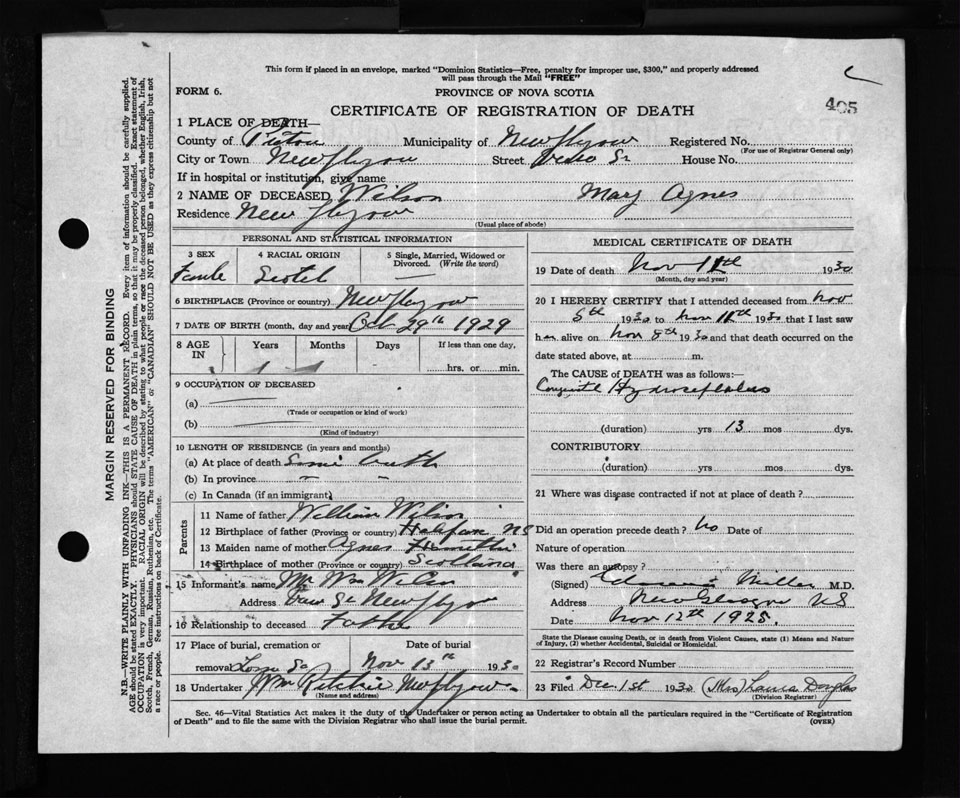 This form if placed in an envelope, marked "Dominion Statistics—Free, penalty for improper use, $300," and properly addressed
will pass through the Mail "FREE"
FORM 6.
PROVINCE OF NOVA SCOTIA
495
CERTIFICATE OF REGISTRATION OF DEATH
1 PLACE OF DEATH—
County of Pictou Municipality of New Glasgow Registered No.
(For use of Registrar General only)
City or Town New Glasgow Street House No.
If in hospital or institution, give name
2 NAME OF DECEASED Wilson Mary Agnes
Residence New Glasgow
(Usual place of abode)
PERSONAL AND STATISTICAL INFORMATION
3 SEX 4 RACIAL ORIGIN 5 Single, Married, Widowed or
Divorced. (Write the word)
Female Scotch
6 BIRTHPLACE (Province or country) New Glasgow
7 DATE OF BIRTH (month, day and year) Oct 29th 1929
8 AGE IN Years Months Days If less than one day,
1 1
hrs. or min.
9 OCCUPATION OF DECEASED
(a)
(Trade or occupation or kind of work)
(b)
(Kind of industry)
10 LENGTH OF RESIDENCE (in years and months)
(a) At place of death Since birth
(b) In province " "
(c) In Canada (if an immigrant)
Parents
11 Name of father William Wilson
12 Birthplace of father (Province or country) Halifax NS
13 Maiden name of mother Agnes
14 Birthplace of mother (Province or country) Scotland
15 Informant's name Mr Wm Wilson
Address New Glasgow
16 Relationship to deceased Father
17 Place of burial, cremation or Date of burial
removal Nov 13th 1930
18 Undertaker Wm Ritchie New Glasgow
(Name and address)
MEDICAL CERTIFICATE OF DEATH
19 Date of death Nov 11th 1930
(Month, day and year)
20 I HEREBY CERTIFY that I attended deceased from Nov
1930 to Nov 11th 1930 that I last saw
her alive on Nov 8th 1930 and that death occurred on the
date stated above, at m.
The CAUSE of DEATH was as follows:
Congenital Hydrocephalus
(duration) yrs 13 mos dys.
CONTRIBUTORY.
(duration) yrs. mos. dys.
21 Where was disease contracted if not at place of death?
Did an operation precede death? No Date of
Nature of operation
Was there an autopsy?
(Signed) Miller M.D.
Address New Glasgow NS
Date Nov 12th 1928.
State the Disease causing Death, or in death from Violent Causes, state (1) Means and Nature
of Injury, (2) whether Accidental, Suicidal or Homicidal.
22 Registrar's Record Number
23 Filed Dec 1st 1930 (Mrs) Laura Douglas
(Division Registrar)
Sec. 46—Vital Statistics Act makes it the duty of the Undertaker or person acting as Undertaker to obtain all the particulars required in the "Certificate of Registration
of Death" and to file the same with the Division Registrar who shall issue the burial permit.
(OVER)
MARGIN RESERVED FOR BINDING
N.B.—WRITE PLAINLY WITH UNFADING INK—THIS IS A PERMANENT RECORD. Every item of information should be carefully supplied.
AGE should be stated EXACTLY. PHYSICIANS should STATE CAUSE OF DEATH in plain terms, so that it may be properly classified. Exact statement of
OCCUPATION is very important. RACIAL ORIGIN will be described by stating to what people or race the deceased person belonged, whether English, Irish,
Scotch, French, German, Russian, Ruthenian, etc. The terms "AMERICAN" or "CANADIAN" SHOULD NOT BE USED as they express citizenship but not
a race or people. See instructions on back of Certificate.